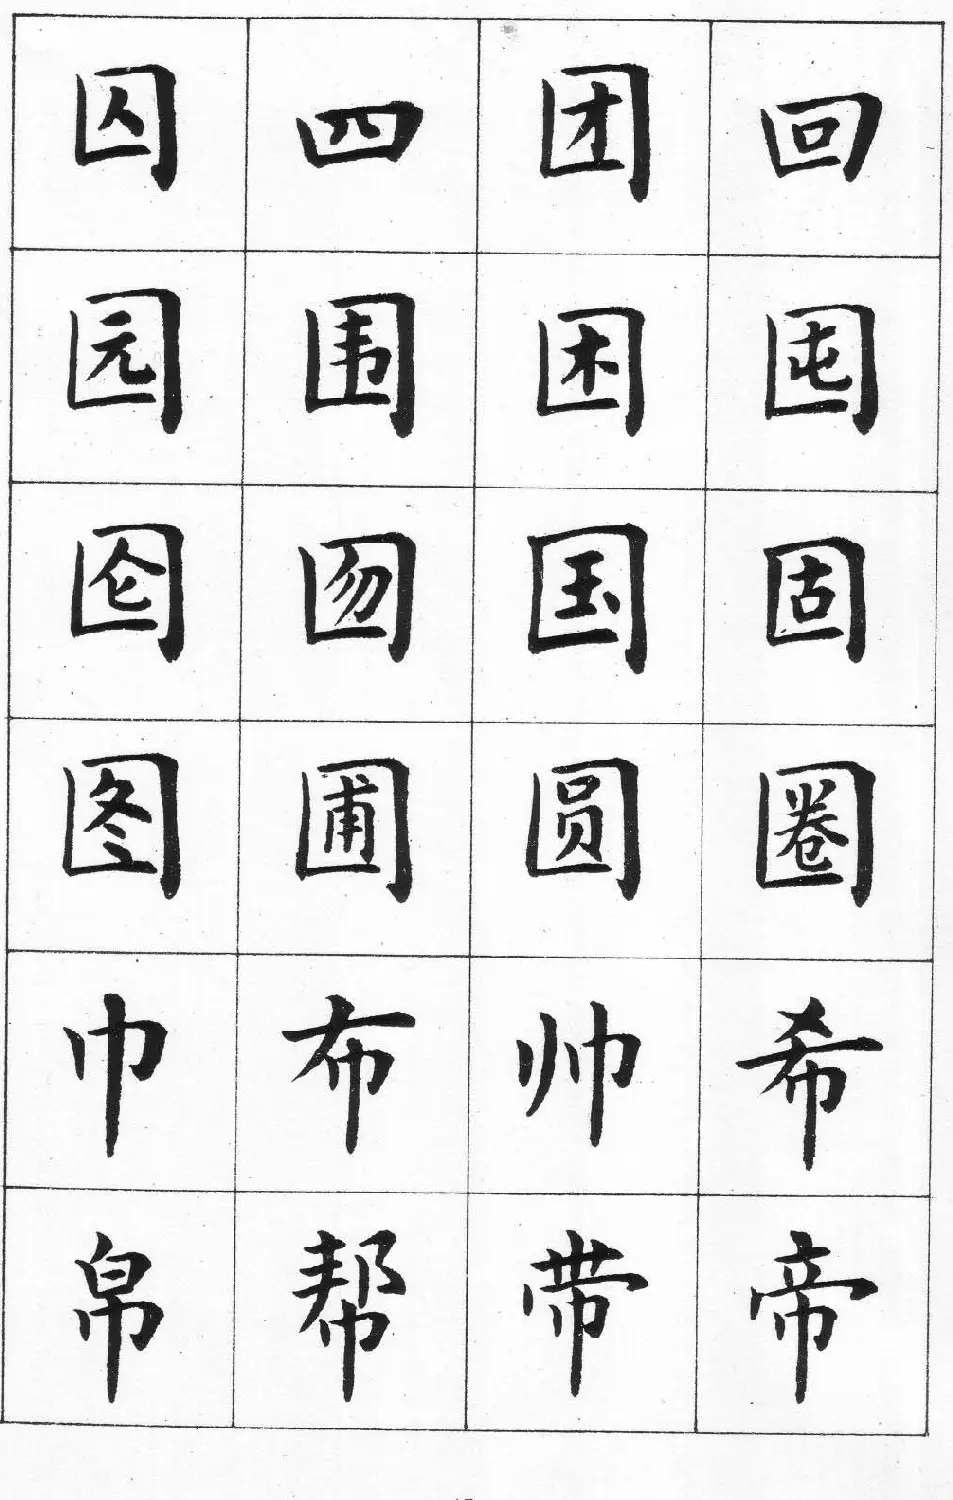 囚四团回
园围困囤
囵囫国固
图圃圆圈
巾布帅希
帛帮带帝